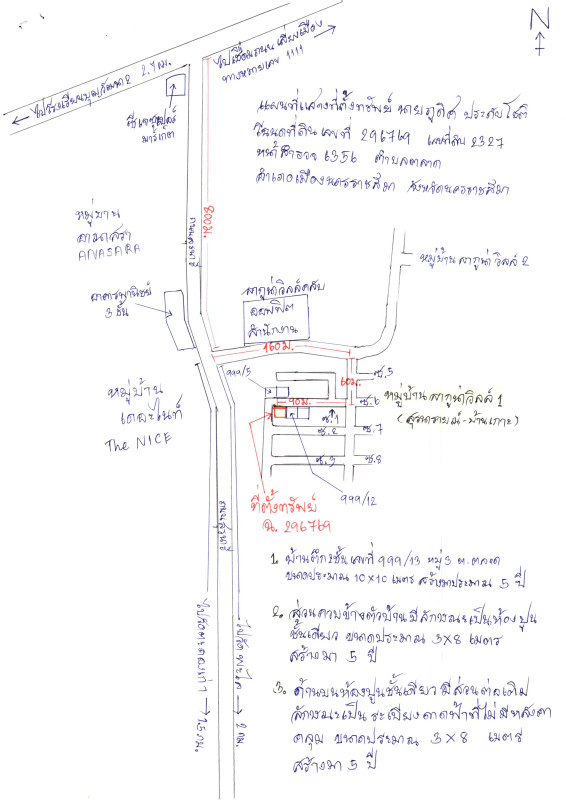 N
ไปเชื่อมถนนเลี่ยงเมือง
ทางหลวงเลข 1111
ไปโรงเรียนบุญวัฒนา 2 2.7 กม.
ซีเจซุปเปอร์
มาร์เก็ต
แผนที่แสดงที่ตั้งทรัพย์ นายภูดิศ ประดับโชติ
โฉนดที่ดิน เลขที่ 296769 เลขที่ดิน 2327
หน้าสำรวจ 6356 ตำบลตลาด
อำเภอเมืองนครราชสีมา จังหวัดนครราชสีมา
800ม.
หมู่บ้าน
อานาสรา
ANASARA
หมู่บ้าน ลากูน่า วิลล์ 2
อาคารพาณิชย์
3 ชั้น
ลากูน่าวิลล์คลับ
ออฟฟิศ
สำนักงาน
160ม.
60ม.
999/5
90ม.
ซ.5
ซ.6
ซ.1
ซ.2
ซ.7
ซ.3
ซ.8
หมู่บ้าน ลากูน่าวิลล์ 1
(สุรนารายณ์-บ้านเกาะ)
หมู่บ้าน
เดอะไนท์
The NICE
999/12
ที่ตั้งทรัพย์
ฉ. 296769
1. บ้านตึก 2 ชั้น เลขที่ 999/13 หมู่ 3 ต.ตลาด
ขนาดประมาณ 10×10 เมตร สร้างมาประมาณ 5 ปี
2. ส่วนควบข้างตัวบ้าน มีลักษณะเป็นห้องปูน
ชั้นเดียว ขนาดประมาณ 3×8 เมตร
สร้างมา 5 ปี
3. ด้านบนห้องปูนชั้นเดียว มีส่วนต่อเติม
ลักษณะเป็น ระเบียงดาดฟ้าที่ไม่มีหลังคา
คลุม ขนาดประมาณ 3×8 เมตร
สร้างมา 5 ปี
1.5 กม.
2 กม.